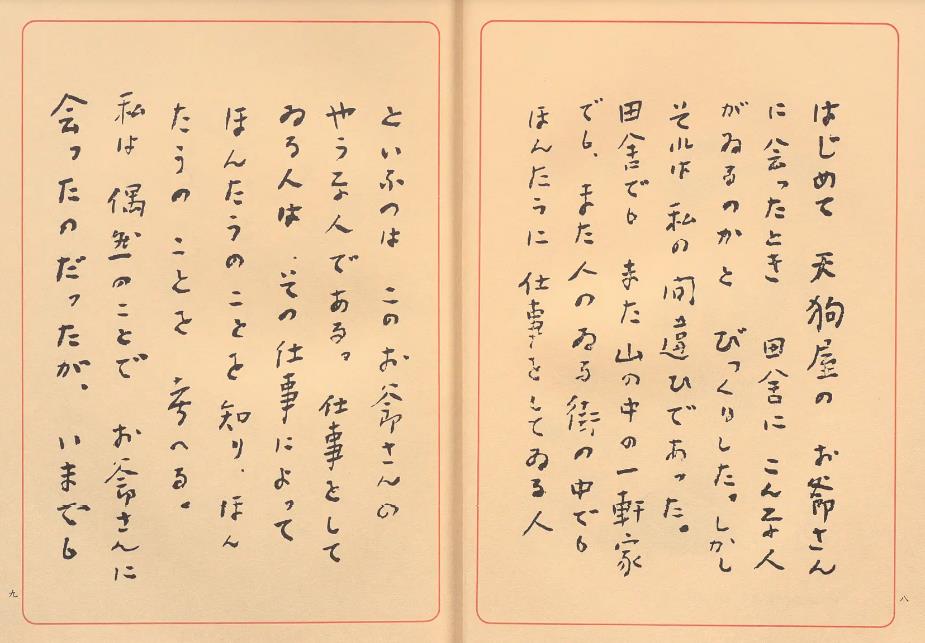 はじめて 天狗屋の お爺さん
に会ったとき 田舎に こんな人
がゐるのかと びっくりした。しかし
それは 私の 間違ひであった。
田舎でも また山の中の一軒家
でも、また人のゐる街の中でも
ほんたうに 仕事をしてゐる人
八
といふのは このお爺さんの
やうな人である。仕事をして
ゐる人は、その仕事によって
ほんたうのことを知り、ほん
たうの ことを 考へる。
私は 偶然のことで お爺さんに
会ったのだったが、いまでも
九